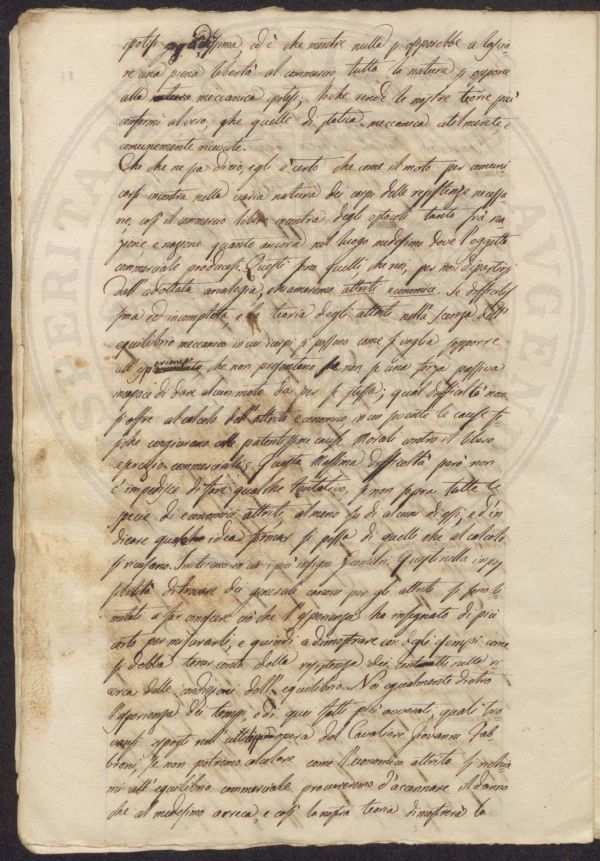 ipotesi agiatissima, ed è che mentre nulla si opporebbe a lascia-
re una piena libertà al commercio, tutta la natura si oppone
alla meccanica ipotesi, loché rende le nostre teorie più
conformi al vero, che quelle di statica meccanica utilmente, e
comunemente ricevute.
Che che ne sia dicio, egli è certo che come il moto per comuni
corpi incontra nella varia natura dei corpi delle resistenze necessa-
rie, così il commercio libero incontra degli ostacoli tanto frà na-
zione e nazione quanto ancora nel luogo medesimo dove l'oggetto
commerciale producesi. Questi sono quelli che noi, per non dipartirsi
dall'adottata analogia, chiameremo attriti economici. Se difficilis-
sima ed incompleta è la teoria degli attriti nella scienza dell'
equilibrio meccanico in cui i corpi si possono come si voglia supporre
all' che non presentano se non se una forza passiva
incapace di dare alcun moto da per se stessa; qual difficoltà non
si offre al calcolo dell'attrito economico in cui poiché le cause fi-
siche congiurano alle potentissime cause Morali contro il libero
commerciale; Questa massima difficoltà però non
c'impedisce di fare qualche tentativo, se non sopra tutte le
specie di economici attriti, almeno su di alcuni di essi, e d'in-
dicare qualche idea formar si possa di quelli che al calcolo
si ricusano. Imiteremo in ciò i più insigni Geometri. Questi nella impos-
sibilità di trovare dei generali canoni per gli attriti si sono li-
mitati a far conoscere ciò che l'esperienza ha insegnato di più
certo per misurarli, e quindi a dimostrare con degli esempi come
si debba tener conto della resistenza dei nella ri-
cerca delle condizioni dell'equilibrio. Noi egualmente dietro
l'esperienza dei tempi, e di quei fatti più avverati, quali tro-
vansi esposti nell' opera del Cavaliere Giovanni Fab-
broni, se non potremo calcolare come l'economico attrito si richia-
mi all'equilibrio commerciale procureremo d'accennare il danno
che al medesimo arreca, e così la nostra teoria dimostrerà la